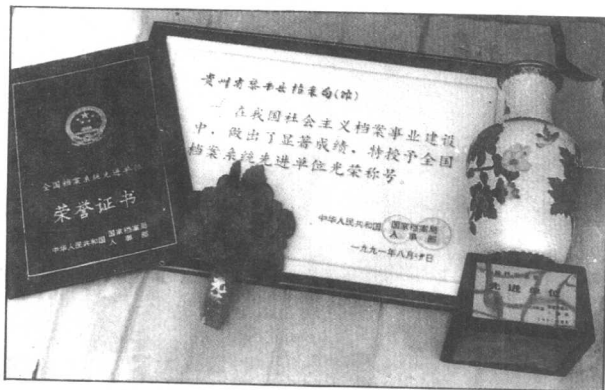 全国档案系统先进单位
荣誉证书
中华人民共和国 国家档案局
人事部
贵州省黎平县档案局(馆)
在我国社会主义档案事业建设
中，做出了显著成绩，特授予全国
档案系统先进单位光荣称号。
中华人民共和国 国家档案局
人事部
一九九一年八月
先进单位